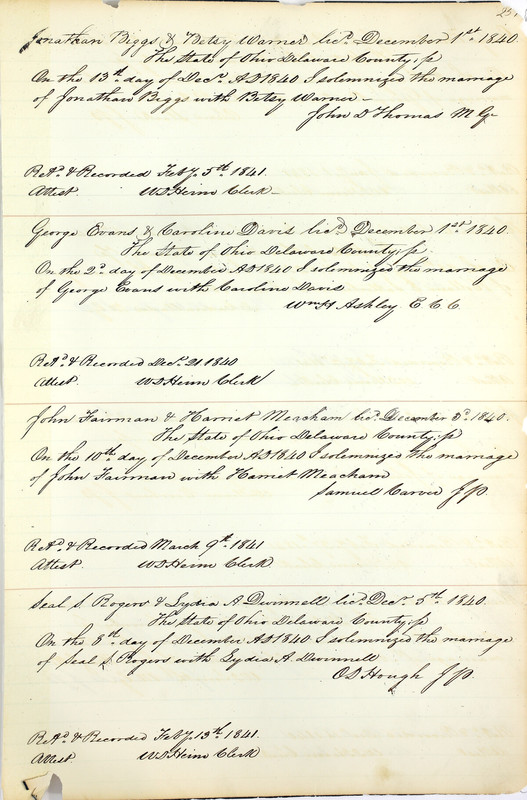 Jonathan Biggs & Betsy Warner licd. December 1st. 1840
The State of Ohio Delaware County, ss
On the 13th day of Decr. AD 1840 I solemnized the marriage
of Jonathan Biggs with Betsy Warner –
John D Thomas M G
Retd. & Recorded Feby. 5th 1841.
Attest. W D Heim Clerk –
George Evans & Caroline Davis licd. December 1st. 1840.
The State of Ohio Delaware County, ss
On the 2d. day of December AD 1840 I solemnized the marriage
of George Evans with Caroline Davis
Wm H Ashley E C C
Retd. & Recorded Decr. 21 1840
Attest. W D Heim Clerk
John Fairman & Harriet Meacham licd. December 3d. 1840.
The State of Ohio Delaware County, ss
On the 10th day of December AD 1840 I solemnized the marriage
of John Fairman with Harriet Meacham
Samuel Carver J P.
Retd. & Recorded March 9th. 1841
Attest. W D Heim Clerk
Seal S. Rogers & Lydia A Dwinnell licd. Decr. 5th. 1840.
The State of Ohio Delaware County, ss
On the 8th day of December AD 1840 I solemnized the marriage
of Seal S Rogers with Lydia A. Dwinnell
O D Hough J P.
Retd. & Recorded Feby. 13th. 1841.
Attest. W D Heim Clerk